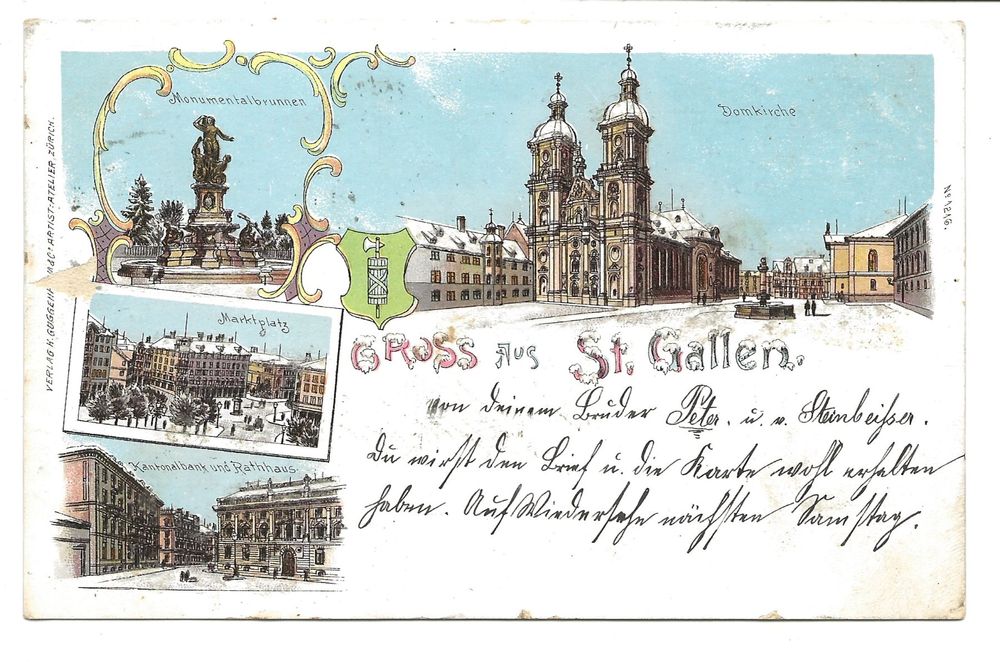 Monumentalbrunnen
Domkirche
Marktplatz
Kantonalbank und Rathhaus
VERLAG H. GUGGENH M & Co ARTIST. ATELIER ZÜRICH.
GRUSS AUS St. Gallen.
von deinem Bruder Peter. u. v. Steinbeisser.
Du wirst den Brief u. die Karte wohl erhalten
haben. Auf Wiedersehn nächsten Samstag.